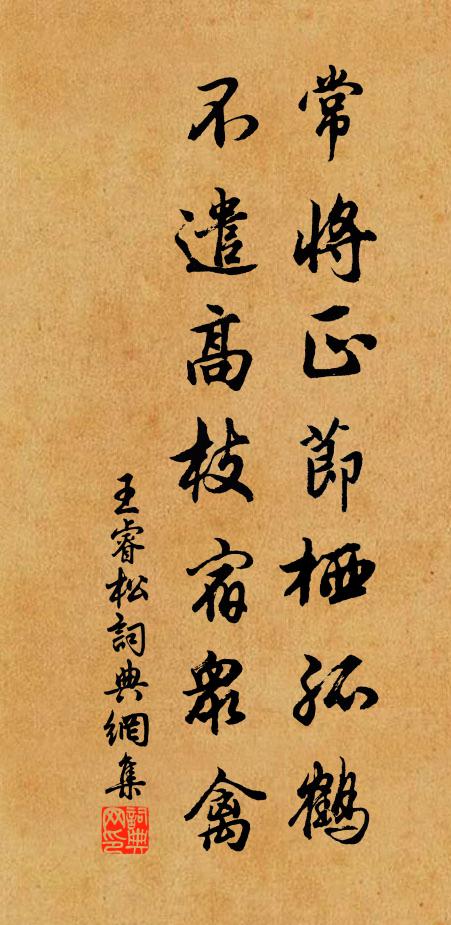 常將正節栖孤鶴
不遣高枝宿衆禽
王睿松詞典網集
詞典網印